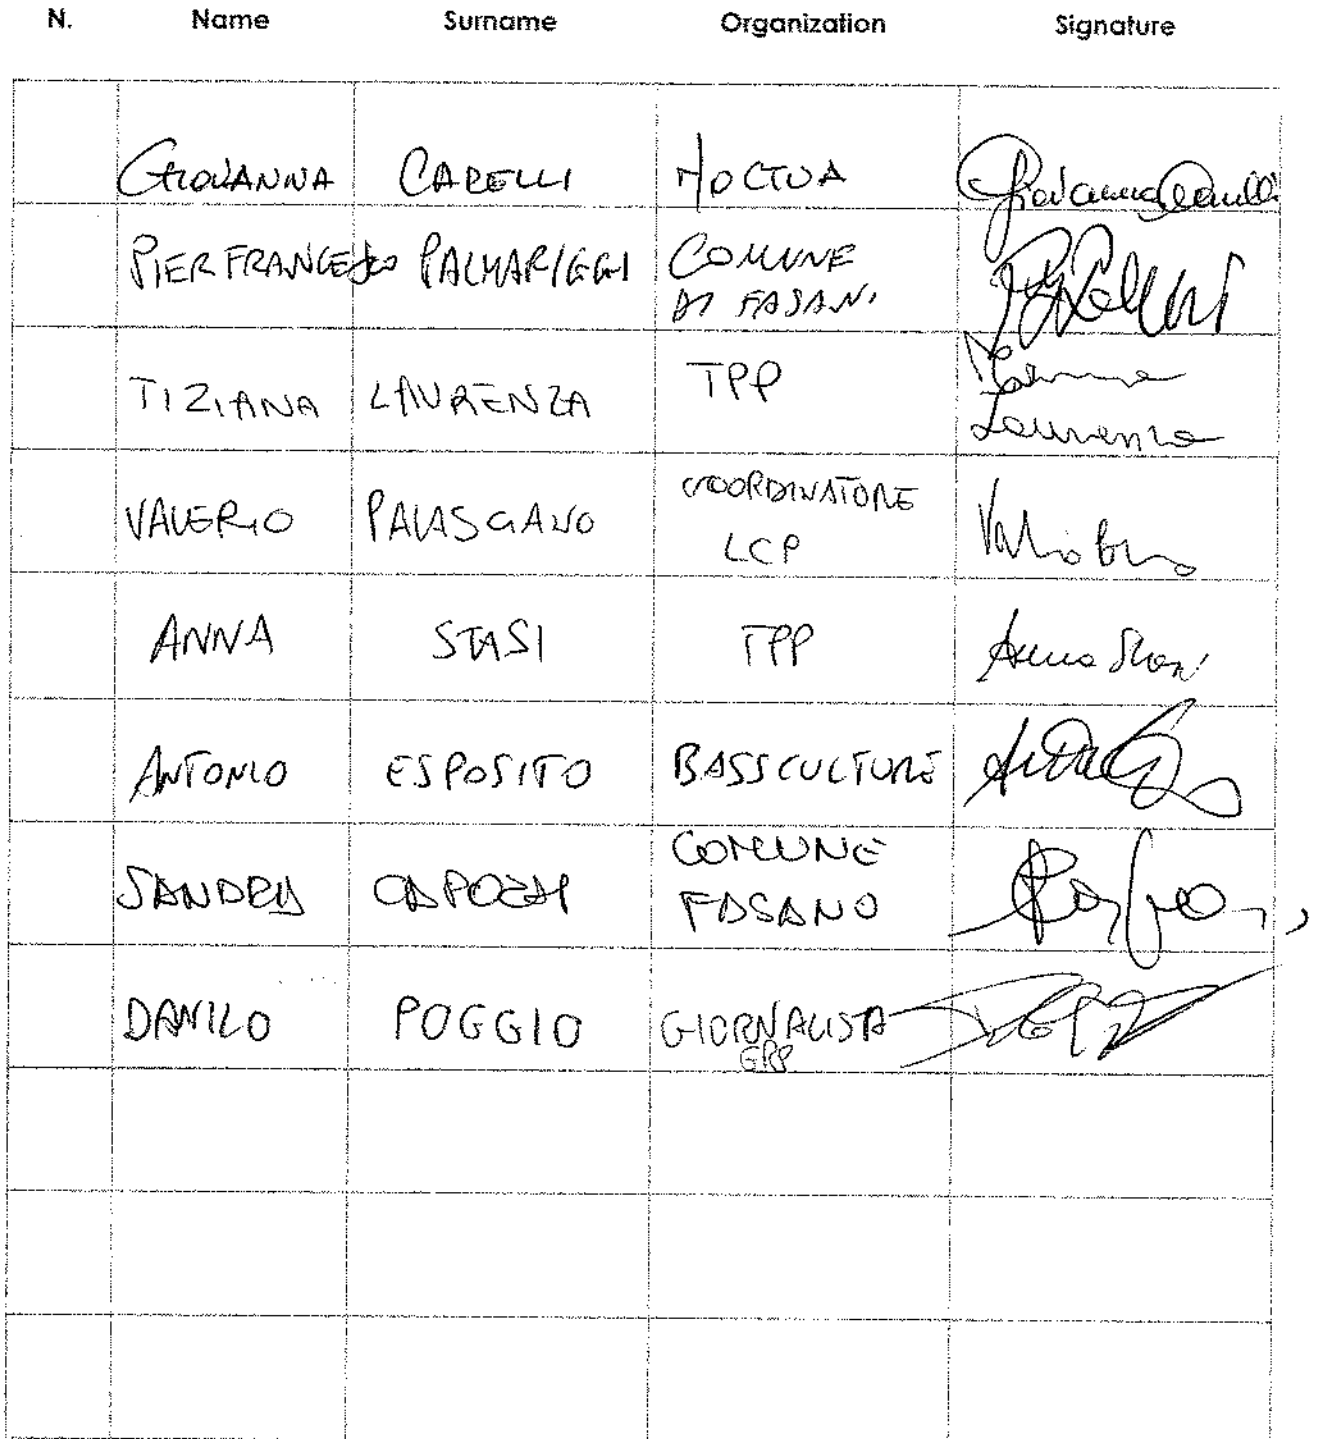 N. Name Surname Organization Signature
GIOVANNA CARELLI NOCTUA Giovanna Carelli
PIERFRANCESCO PALMARIGGI COMUNE
DI FASANO
TIZIANA LAURENZA TPP Tiziana
Laurenza
VALERIO PALASCIANO COORDINATORE
LCP
ANNA STASI TPP Anna Stasi
ANTONIO ESPOSITO BASSCULTURE
SANDRA CAPOZZI COMUNE
FASANO
DANILO POGGIO GIORNALISTA
GRP